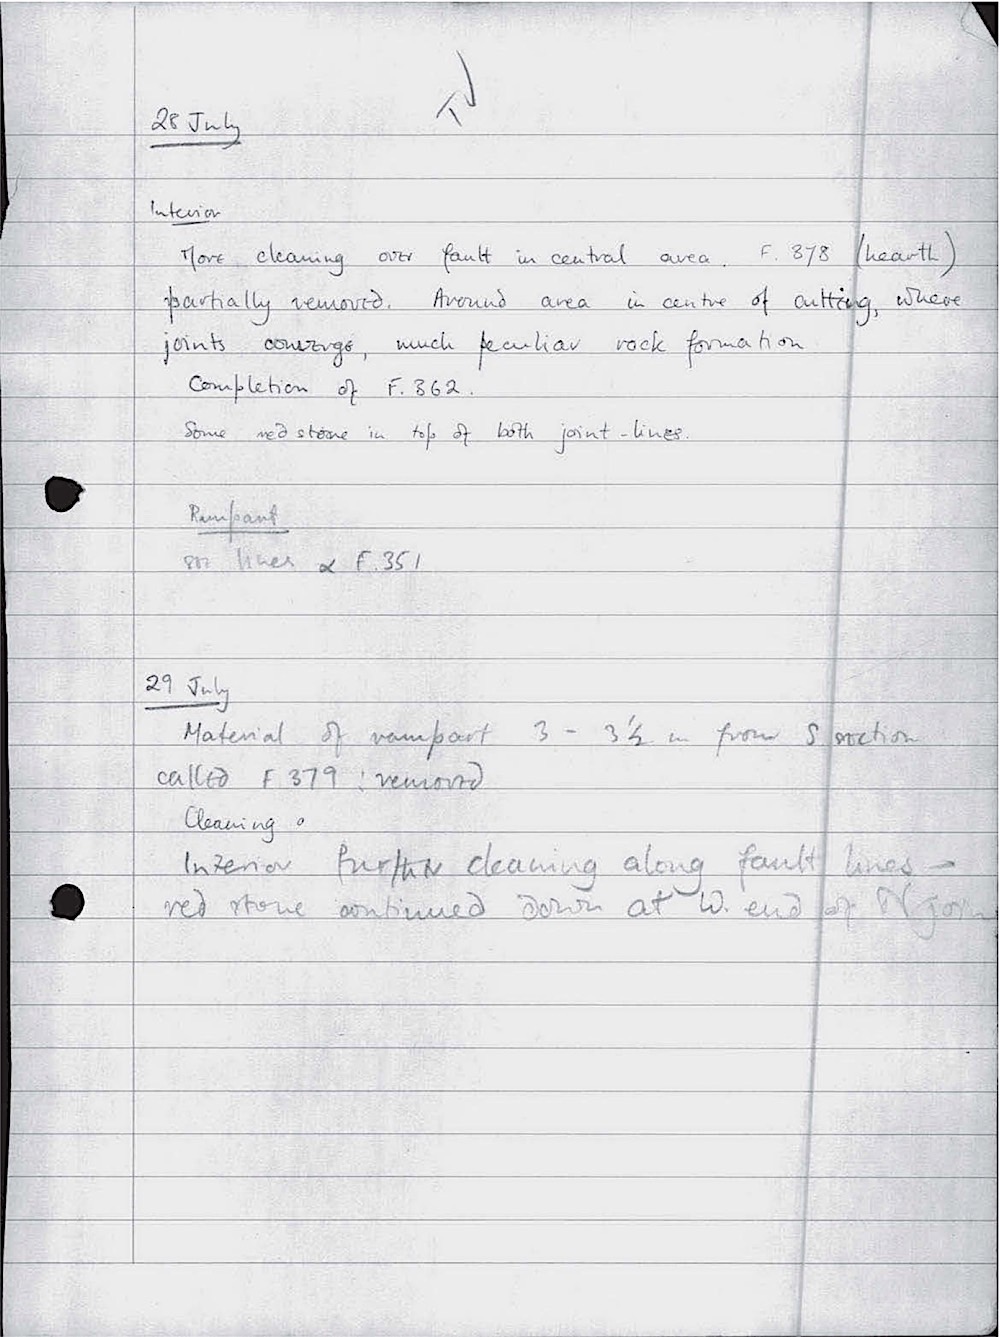 28 July
Interior
More cleaning over fault in central area. F. 378 (hearth)
partially removed. Around area in centre of cutting, where
joints converge, much peculiar rock formation
Completion of F. 362.
Some red stone in top of both joint-lines.
Rampart
lines & F. 351
29 July
Material of rampart 3 - 3½ m from S section
called F 379 : removed
Cleaning.
Interior further cleaning along fault lines –
red stone continued down at W. end of N join